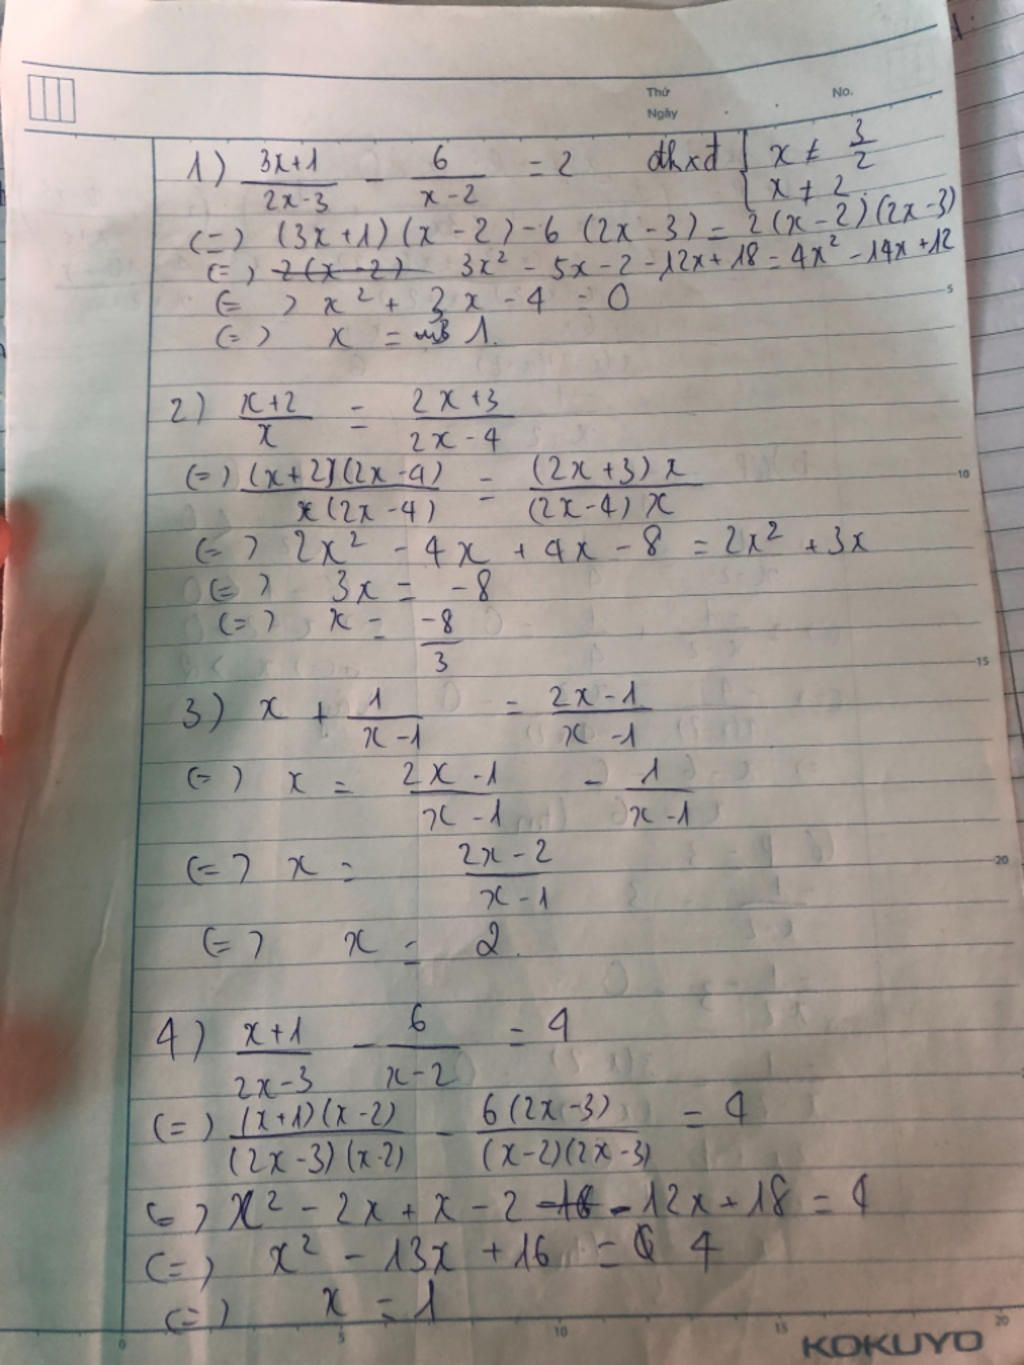 Thứ
Ngày
No.
1) (3x+1)/(2x-3) - 6/(x-2) = 2 đkxđ { x ≠ 3/2
x ≠ 2
(=) (3x+1)(x-2)-6(2x-3) = 2(x-2)(2x-3)
(=) 2(x-2) 3x² - 5x - 2 - 12x + 18 = 4x² - 14x + 12
(=) x² + 3x - 4 = 0
(=) x = 1.
2) (x+2)/x = (2x+3)/(2x-4)
(=) (x+2)(2x-4)/x(2x-4) = (2x+3)x/(2x-4)x
(=) 2x² - 4x + 4x - 8 = 2x² + 3x
(=) 3x = -8
(=) x = -8/3
3) x + 1/(x-1) = (2x-1)/(x-1)
(=) x = (2x-1)/(x-1) - 1/(x-1)
(=) x = (2x-2)/(x-1)
(=) x = 2.
4) (x+1)/(2x-3) - 6/(x-2) = 4
(=) (x+1)(x-2)/(2x-3)(x-2) - 6(2x-3)/(x-2)(2x-3) = 4
(=) x² - 2x + x - 2 - 18 - 12x + 18 = 4
(=) x² - 13x + 16 = 4
(=) x = 1
5
10
15
20
0 5 10 15 20
KOKUYO